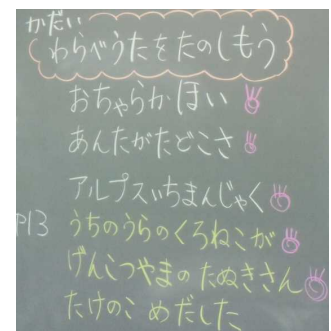 かだい
わらべうたをたのしもう
おちゃらかほい
あんたがたどこさ
アルプスいちまんじゃく
P13 うちのうらのくろねこが
げんこつやまのたぬきさん
たけのこ めだした